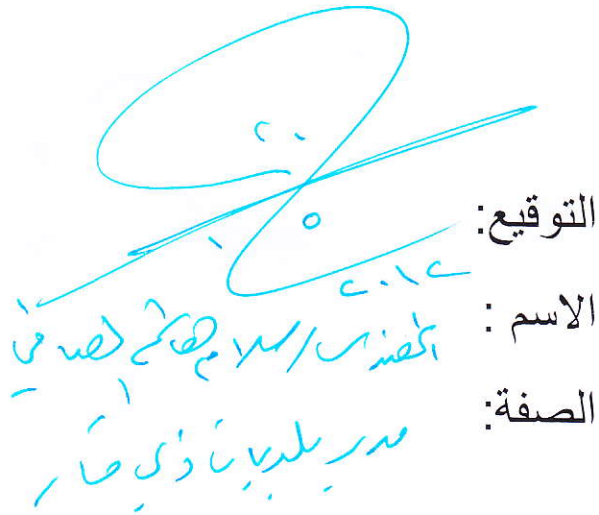 التوقيع:
٢٠١٢
الاسم : المهندس / سلام هاشم
الصفة: مدير بلديات ذي قار